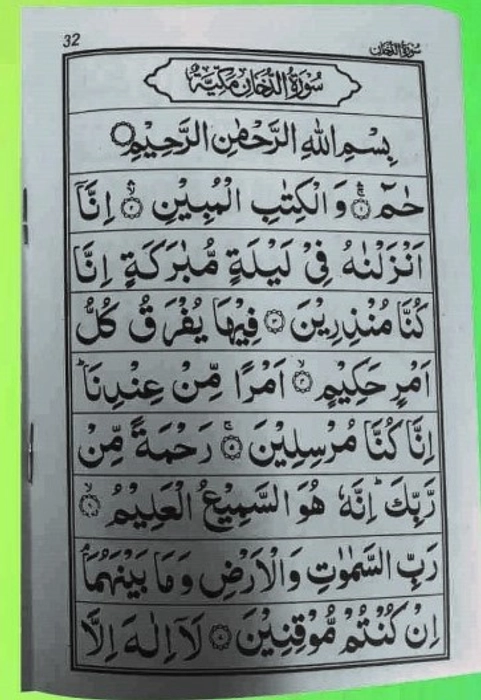 32
سُوۡرَةُ الدُّخَانِ
سُوۡرَةُ الدُّخَانِ مَكِّيَّةٌ
بِسۡمِ اللهِ الرَّحۡمٰنِ الرَّحِيۡمِ
حٰمٓ ۝۱ وَ الۡكِتٰبِ الۡمُبِيۡنِ ۝۲ اِنَّاۤ
اَنۡزَلۡنٰهُ فِىۡ لَيۡلَةٍ مُّبٰرَكَةٍ اِنَّا
كُنَّا مُنۡذِرِيۡنَ ۝۳ فِيۡهَا يُفۡرَقُ كُلُّ
اَمۡرٍ حَكِيۡمٍ ۝۴ اَمۡرًا مِّنۡ عِنۡدِنَا ؕ
اِنَّا كُنَّا مُرۡسِلِيۡنَ ۝۵ رَحۡمَةً مِّنۡ
رَّبِّكَ ؕ اِنَّهٗ هُوَ السَّمِيۡعُ الۡعَلِيۡمُ ۝۶
رَبِّ السَّمٰوٰتِ وَ الۡاَرۡضِ وَ مَا بَيۡنَهُمَا ۘ
اِنۡ كُنۡتُمۡ مُّوۡقِنِيۡنَ ۝۷ لَاۤ اِلٰهَ اِلَّا